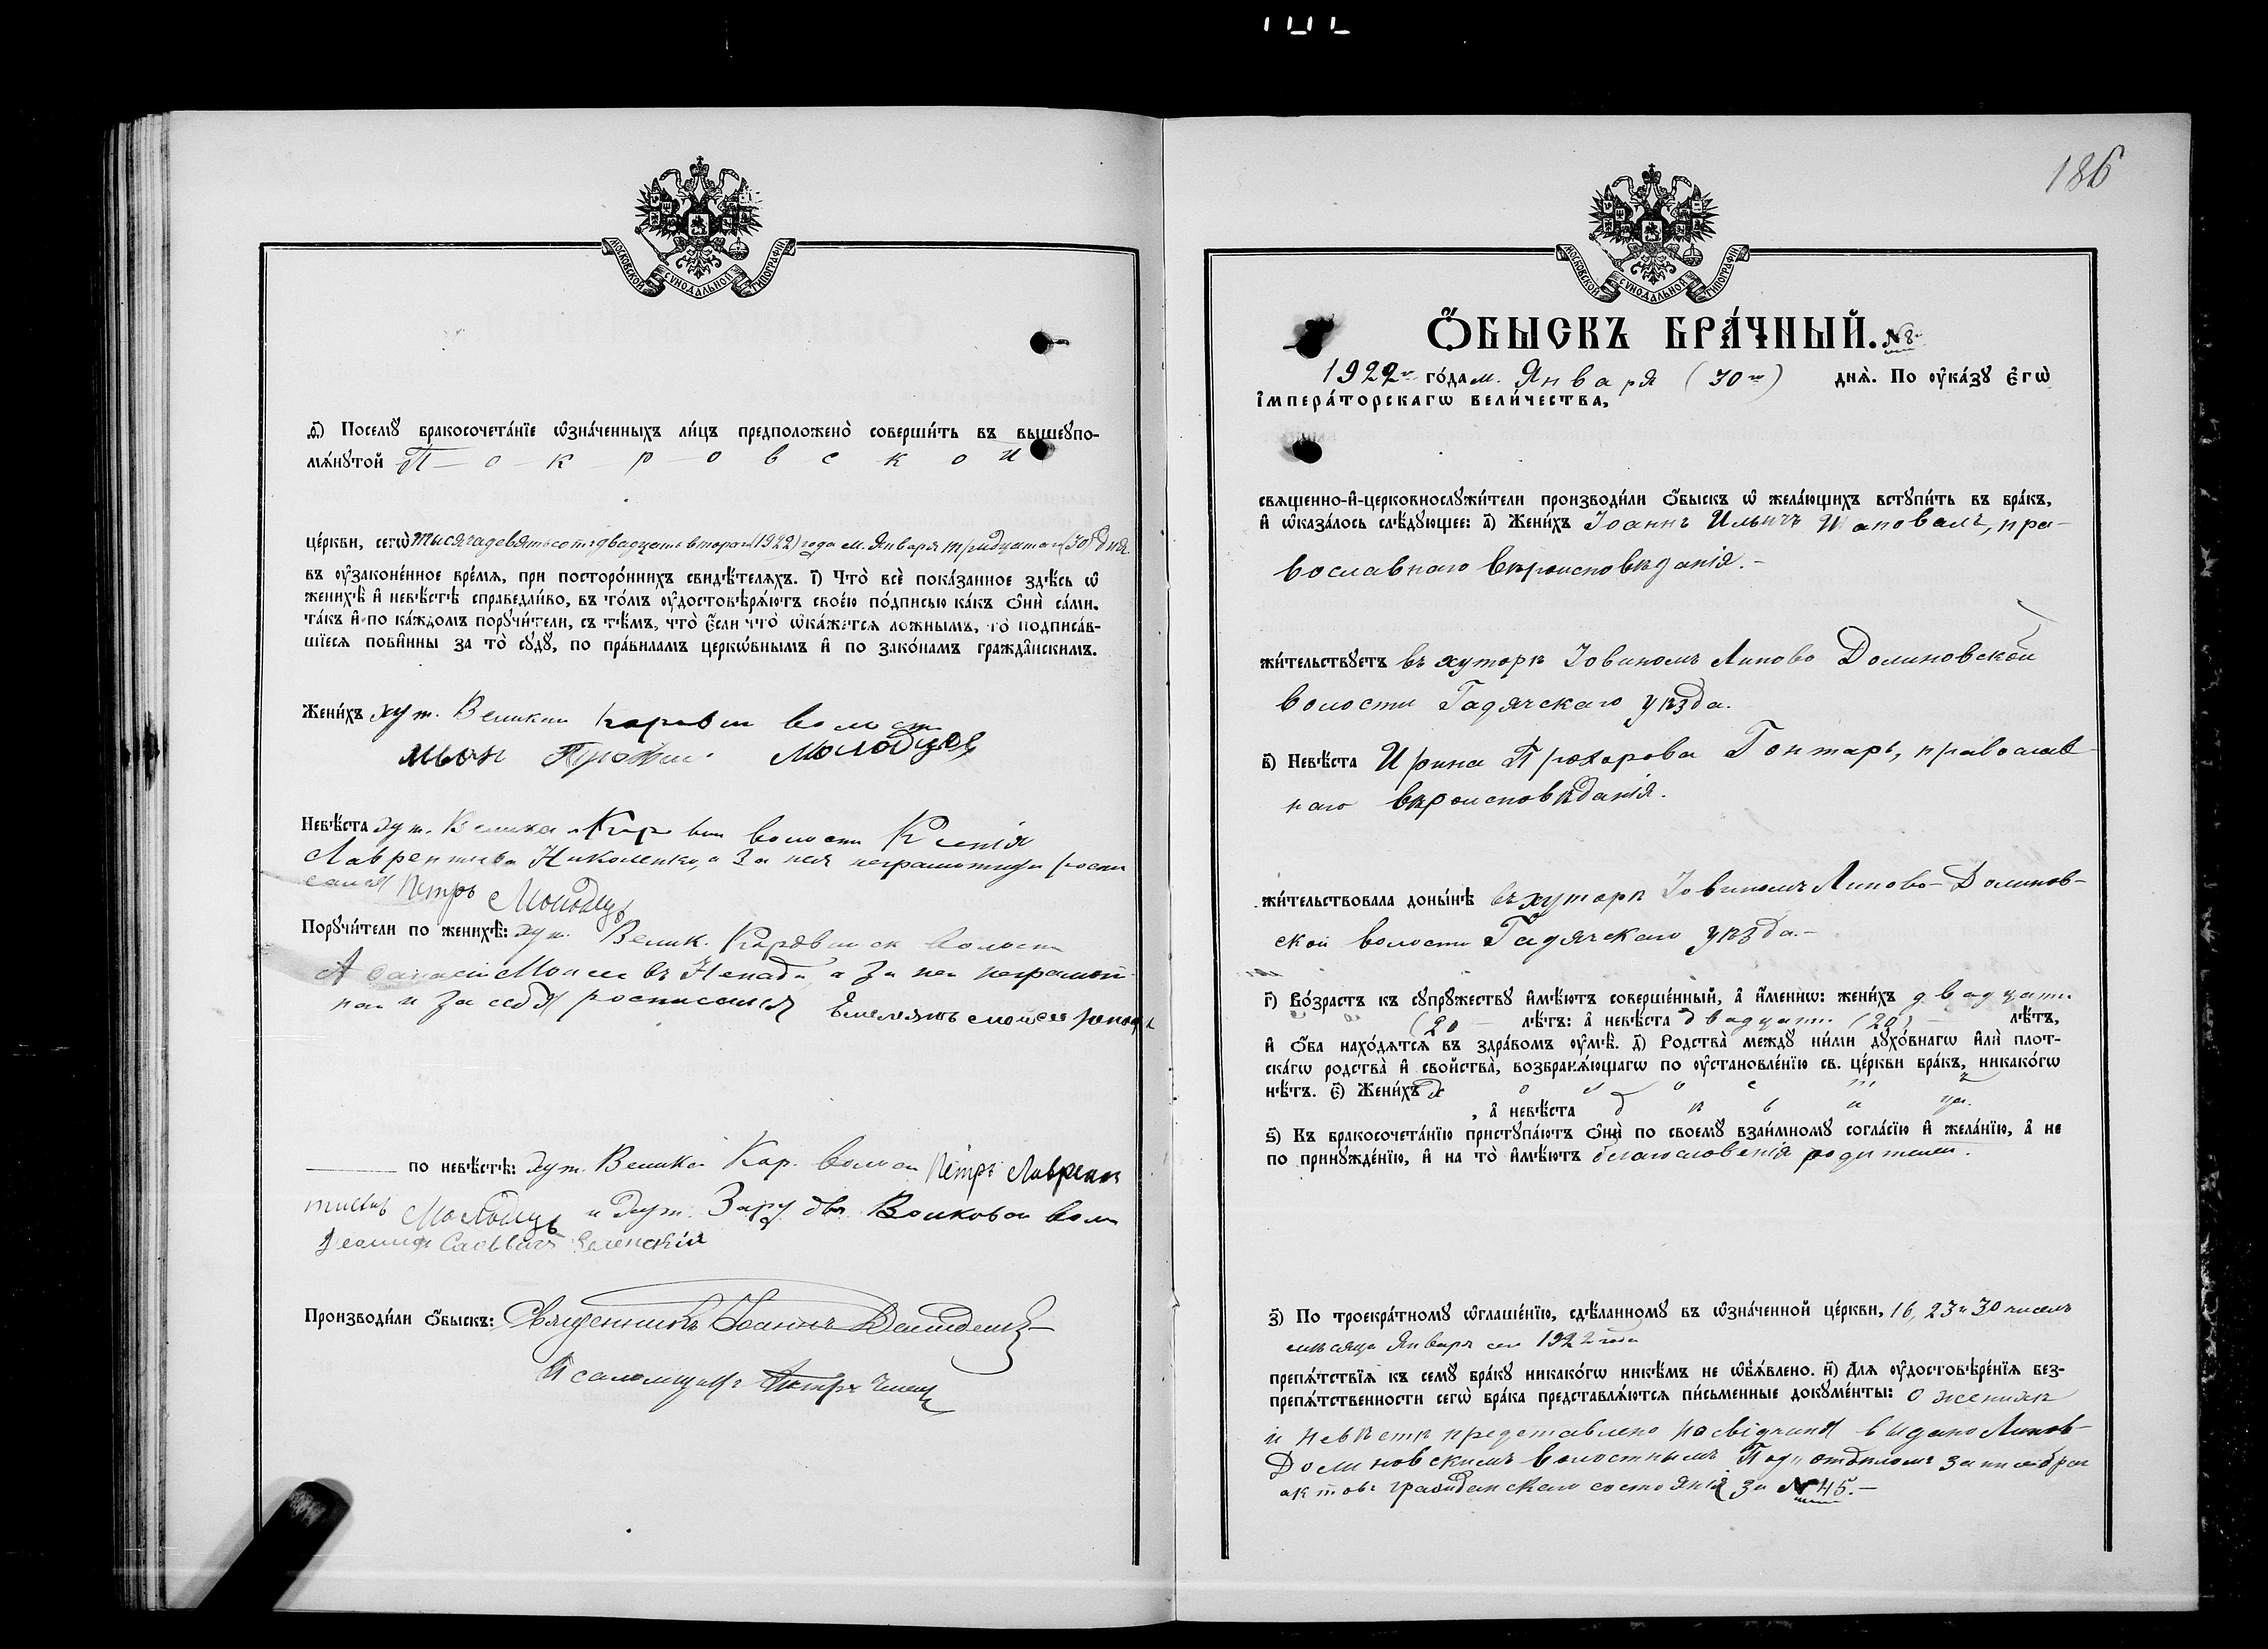 МОСКОВСКОЙ СѴНОДАЛЬНОЙ ТИПОГРАФІИ
ѳ҃) Посемꙋ̀ бракосочета́нїе ѡ҆зна́ченныхъ ли́цъ предположено̀ соверши́ть въ вышеꙋпо-
мѧ́нꙋтой Покровской
це́ркви, сегѡ̀ тысяча девятьсотъ двадцать второго (1922) года м. Января тридцатаго (30) дня
въ ᲂу҆зако́ненное вре́мѧ, при посторо́ннихъ свидѣ́телѧхъ. і҃) Что̀ всѐ пока́занное здѣ́сь ѡ҆
женихѣ̀ и҆ невѣ́стѣ справедли́во, въ то́мъ ᲂу҆достовѣрѧ́ютъ свое́ю по́дписью ка́къ ѻ҆нѝ са́ми.
та́къ и҆ по ка́ждомъ порꙋчи́тели, съ тѣ́мъ, что̀ є҆́сли что̀ ѡ҆ка́жетсѧ ло́жнымъ, то̀ подписа́в-
шїесѧ пови́нны за то̀ сꙋдꙋ̀, по пра́виламъ церко́внымъ и҆ по зако́намъ гражда́нскимъ.
Жени́хъ хут. Великой волости
Молодцов
Невѣ́ста хут. Велика волости
Лаврентьева Николенко, а за нея неграмотную роспи
сался Петръ Молодець
Порꙋчи́тели по женихѣ̀: хут. Велик. волости
а за неграмот
наго и за себя росписался
по невѣ́стѣ: хут. Великой Кар. волости Петръ Лаврен
тиевъ Молодець и хут. Волковой воло
Зеленскій
Производи́ли ѻ҆́быскъ: Священникъ Іоаннъ
Псаломщикъ Петръ
186
МОСКОВСКОЙ СѴНОДАЛЬНОЙ ТИПОГРАФІИ
Ѻ҆́БЫСКЪ БРА́ЧНЫЙ. №8й
1922го го́да м. Января (30го) днѧ̀. По ᲂу҆ка́зꙋ Є҆гѡ̀
І҆мпера́торскагѡ вели́чества,
свѧщенно-и҆-церковнослꙋжи́тели производи́ли ѻ҆́быскъ ѡ҆ жела́ющихъ встꙋпи́ть въ бра́къ,
и҆ ѡ҆каза́лось слѣ́дꙋющее: а҃) Жени́хъ Іоаннъ Ильичъ Шаповалъ, пра-
вославнаго вѣроисповѣданія.-
жи́тельствꙋетъ въ хуторѣ Іовиномъ Липово Долиновской
волости Гадячскаго уѣзда.
в҃) Невѣ́ста Ирина Прохорова Гонтарь, православ
наго вѣроисповѣданія.
жи́тельствовала доны́нѣ въ хуторѣ Іовиномъ Липово-Долинов-
ской волости Гадячскаго уѣзда.-
г҃) Во́зрастъ къ сꙋпрꙋ́жествꙋ и҆мѣ́ютъ соверше́нный, а҆ и҆́менно: жени́хъ двадцати
(20 лѣ́тъ: а҆ невѣ́ста двадцати (20) лѣ́тъ,
и҆ ѻ҆́ба нахо́дѧтсѧ въ здра́вомъ ᲂу҆мѣ̀. д҃) Родства̀ междꙋ̀ ни́ми дꙋхо́внагѡ и҆лѝ плот-
ска́гѡ родства̀ и҆ свойства̀, возбранѧ́ющагѡ по ᲂу҆становле́нїю св. це́ркви бра́къ, никако́гѡ
нѣ́тъ. є҃) Жени́хъ холостъ
, а҆ невѣ́ста дѣвица.
ѕ҃) Къ бракосочета́нїю пристꙋпа́ютъ ѻ҆нѝ по своемꙋ̀ взаи́мномꙋ согла́сїю и҆ жела́нїю, а҆ не
по принꙋжде́нїю, и҆ на то̀ и҆мѣ́ютъ благословенія родителей.
з҃) По троекра́тномꙋ ѡ҆глаше́нїю, сдѣ́ланномꙋ въ ѡ҆зна́ченной це́ркви, 16, 23 и 30 чиселъ
мѣсяца Января сего 1922 года
препѧ́тствїѧ къ семꙋ̀ бра́кꙋ никако́гѡ никѣ́мъ не ѡ҆бъѧ́влено. и҃) Длѧ ᲂу҆достовѣре́нїѧ без-
препѧ́тственности сегѡ̀ бра́ка представлѧ́ютсѧ пи́сьменные докꙋме́нты: о женихѣ
и невѣстѣ представлено посвідчиня видано Липов-
Долиновскимъ волостнымъ Подъотдѣломъ
актовъ гражданскаго состоянія за №45.-